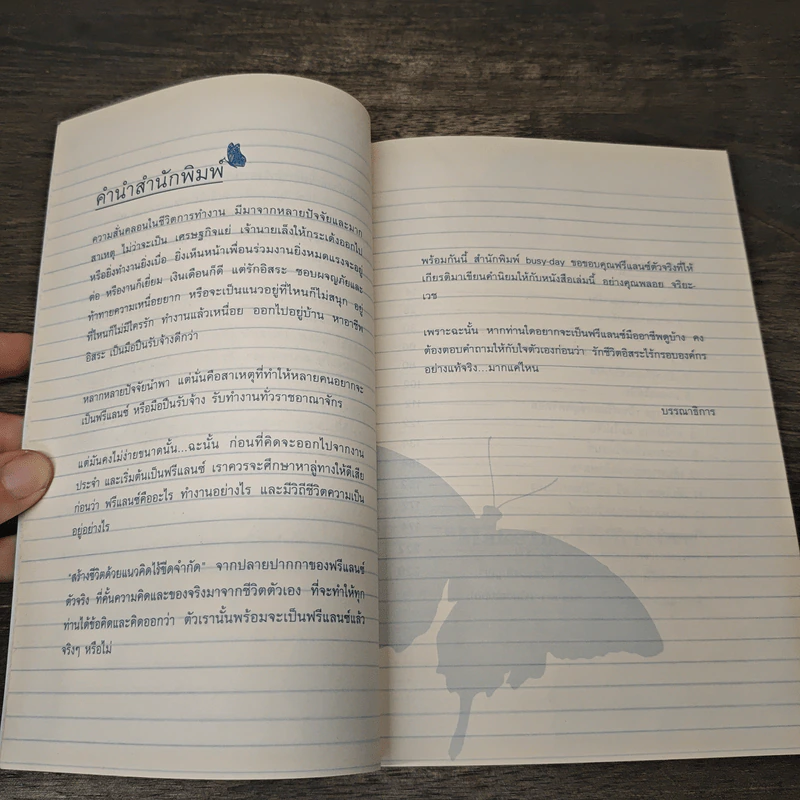 คำนำสำนักพิมพ์
ความสั่นคลอนในชีวิตการทำงาน มีมาจากหลายปัจจัยและมาก
สาเหตุ ไม่ว่าจะเป็น เศรษฐกิจแย่ เจ้านายเล็งให้กระเด้งออกไป
หรือยิ่งทำงานยิ่งเบื่อ ยิ่งเห็นหน้าเพื่อนร่วมงานยิ่งหมดแรงจะอยู่
ต่อ หรืองานก็เยี่ยม เงินเดือนก็ดี แต่รักอิสระ ชอบผจญภัยและ
ทำทายความเหนื่อยยาก หรือจะเป็นแนวอยู่ที่ไหนก็ไม่สนุก อยู่
ที่ไหนก็ไม่มีใครรัก ทำงานแล้วเหนื่อย ออกไปอยู่บ้าน หาอาชีพ
อิสระ เป็นมือปืนรับจ้างดีกว่า
หลากหลายปัจจัยนำพา แต่นั่นคือสาเหตุที่ทำให้หลายคนอยากจะ
เป็นฟรีแลนซ์ หรือมือปืนรับจ้าง รับทำงานทั่วราชอาณาจักร
แต่มันคงไม่ง่ายขนาดนั้น...ฉะนั้น ก่อนที่คิดจะออกไปจากงาน
ประจำ และเริ่มต้นเป็นฟรีแลนซ์ เราควรจะศึกษาหาลู่ทางให้ดีเสีย
ก่อนว่า ฟรีแลนซ์คืออะไร ทำงานอย่างไร และมีวิถีชีวิตความเป็น
อยู่อย่างไร
"สร้างชีวิตด้วยแนวคิดไร้ขีดจำกัด" จากปลายปากกาของฟรีแลนซ์
ตัวจริง ที่คั้นความคิดและของจริงมาจากชีวิตตัวเอง ที่จะทำให้ทุก
ท่านได้ข้อคิดและคิดออกว่า ตัวเรานั้นพร้อมจะเป็นฟรีแลนซ์แล้ว
จริงๆ หรือไม่
พร้อมกันนี้ สำนักพิมพ์ busy-day ขอขอบคุณฟรีแลนซ์ตัวจริงที่ให้
เกียรติมาเขียนคำนิยมให้กับหนังสือเล่มนี้ อย่างคุณพลอย จริยะ-
เวช
เพราะฉะนั้น หากท่านใดอยากจะเป็นฟรีแลนซ์มืออาชีพดูบ้าง คง
ต้องตอบคำถามให้กับใจตัวเองก่อนว่า รักชีวิตอิสระไร้กรอบองค์กร
อย่างแท้จริง...มากแค่ไหน
บรรณาธิการ